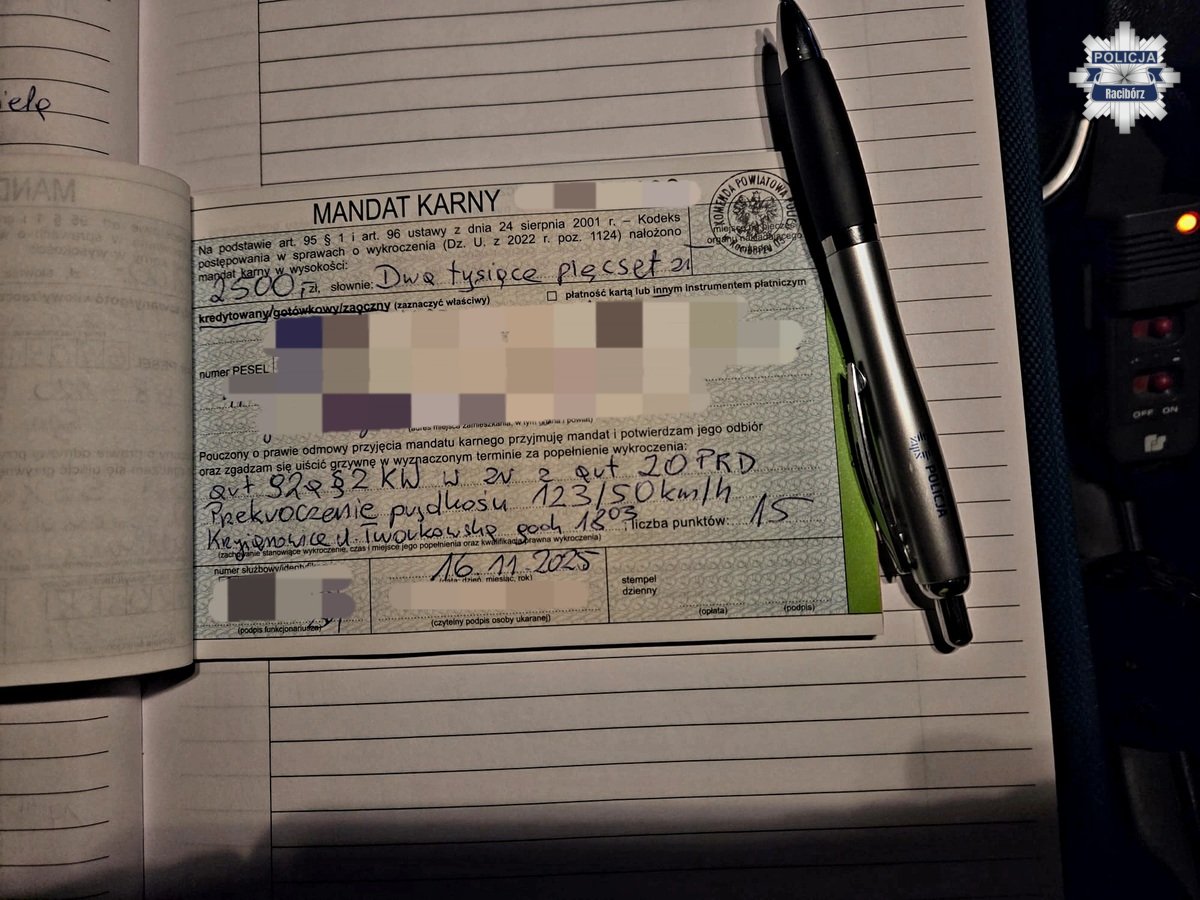 POLICJA
Racibórz
ielę
MANDAT KARNY
Na podstawie art. 95 § 1 i art. 96 ustawy z dnia 24 sierpnia 2001 r. – Kodeks
postępowania w sprawach o wykroczenia (Dz. U. z 2022 r. poz. 1124) nałożono
mandat karny w wysokości:
2500,- zł, słownie: Dwa tysiące pięćset zł
KOMENDA POWIATOWA
kredytowany/gotówkowy/zaoczny (zaznaczyć właściwy)
płatność kartą lub innym instrumentem płatniczym
numer PESEL
Pouczony o prawie odmowy przyjęcia mandatu karnego przyjmuję mandat i potwierdzam jego odbiór
oraz zgadzam się uiścić grzywnę w wyznaczonym terminie za popełnienie wykroczenia:
art 92a §2 KW w zw z art 20 PRD
Przekroczenie prędkości 123/50km/h
Krzyżanowice ul Tworkowska godz 18 03 liczba punktów: 15
(zachowanie stanowiące wykroczenie, czas i miejsce jego popełnienia oraz kwalifikacja prawna wykroczenia)
numer służbowy/identyfik
16.11.2025
(data: dzień, miesiąc, rok)
stempel
dzienny
(podpis funkcjonariusza)
(czytelny podpis osoby ukaranej)
(opłata)
(podpis)
POLICJA
OFF ON